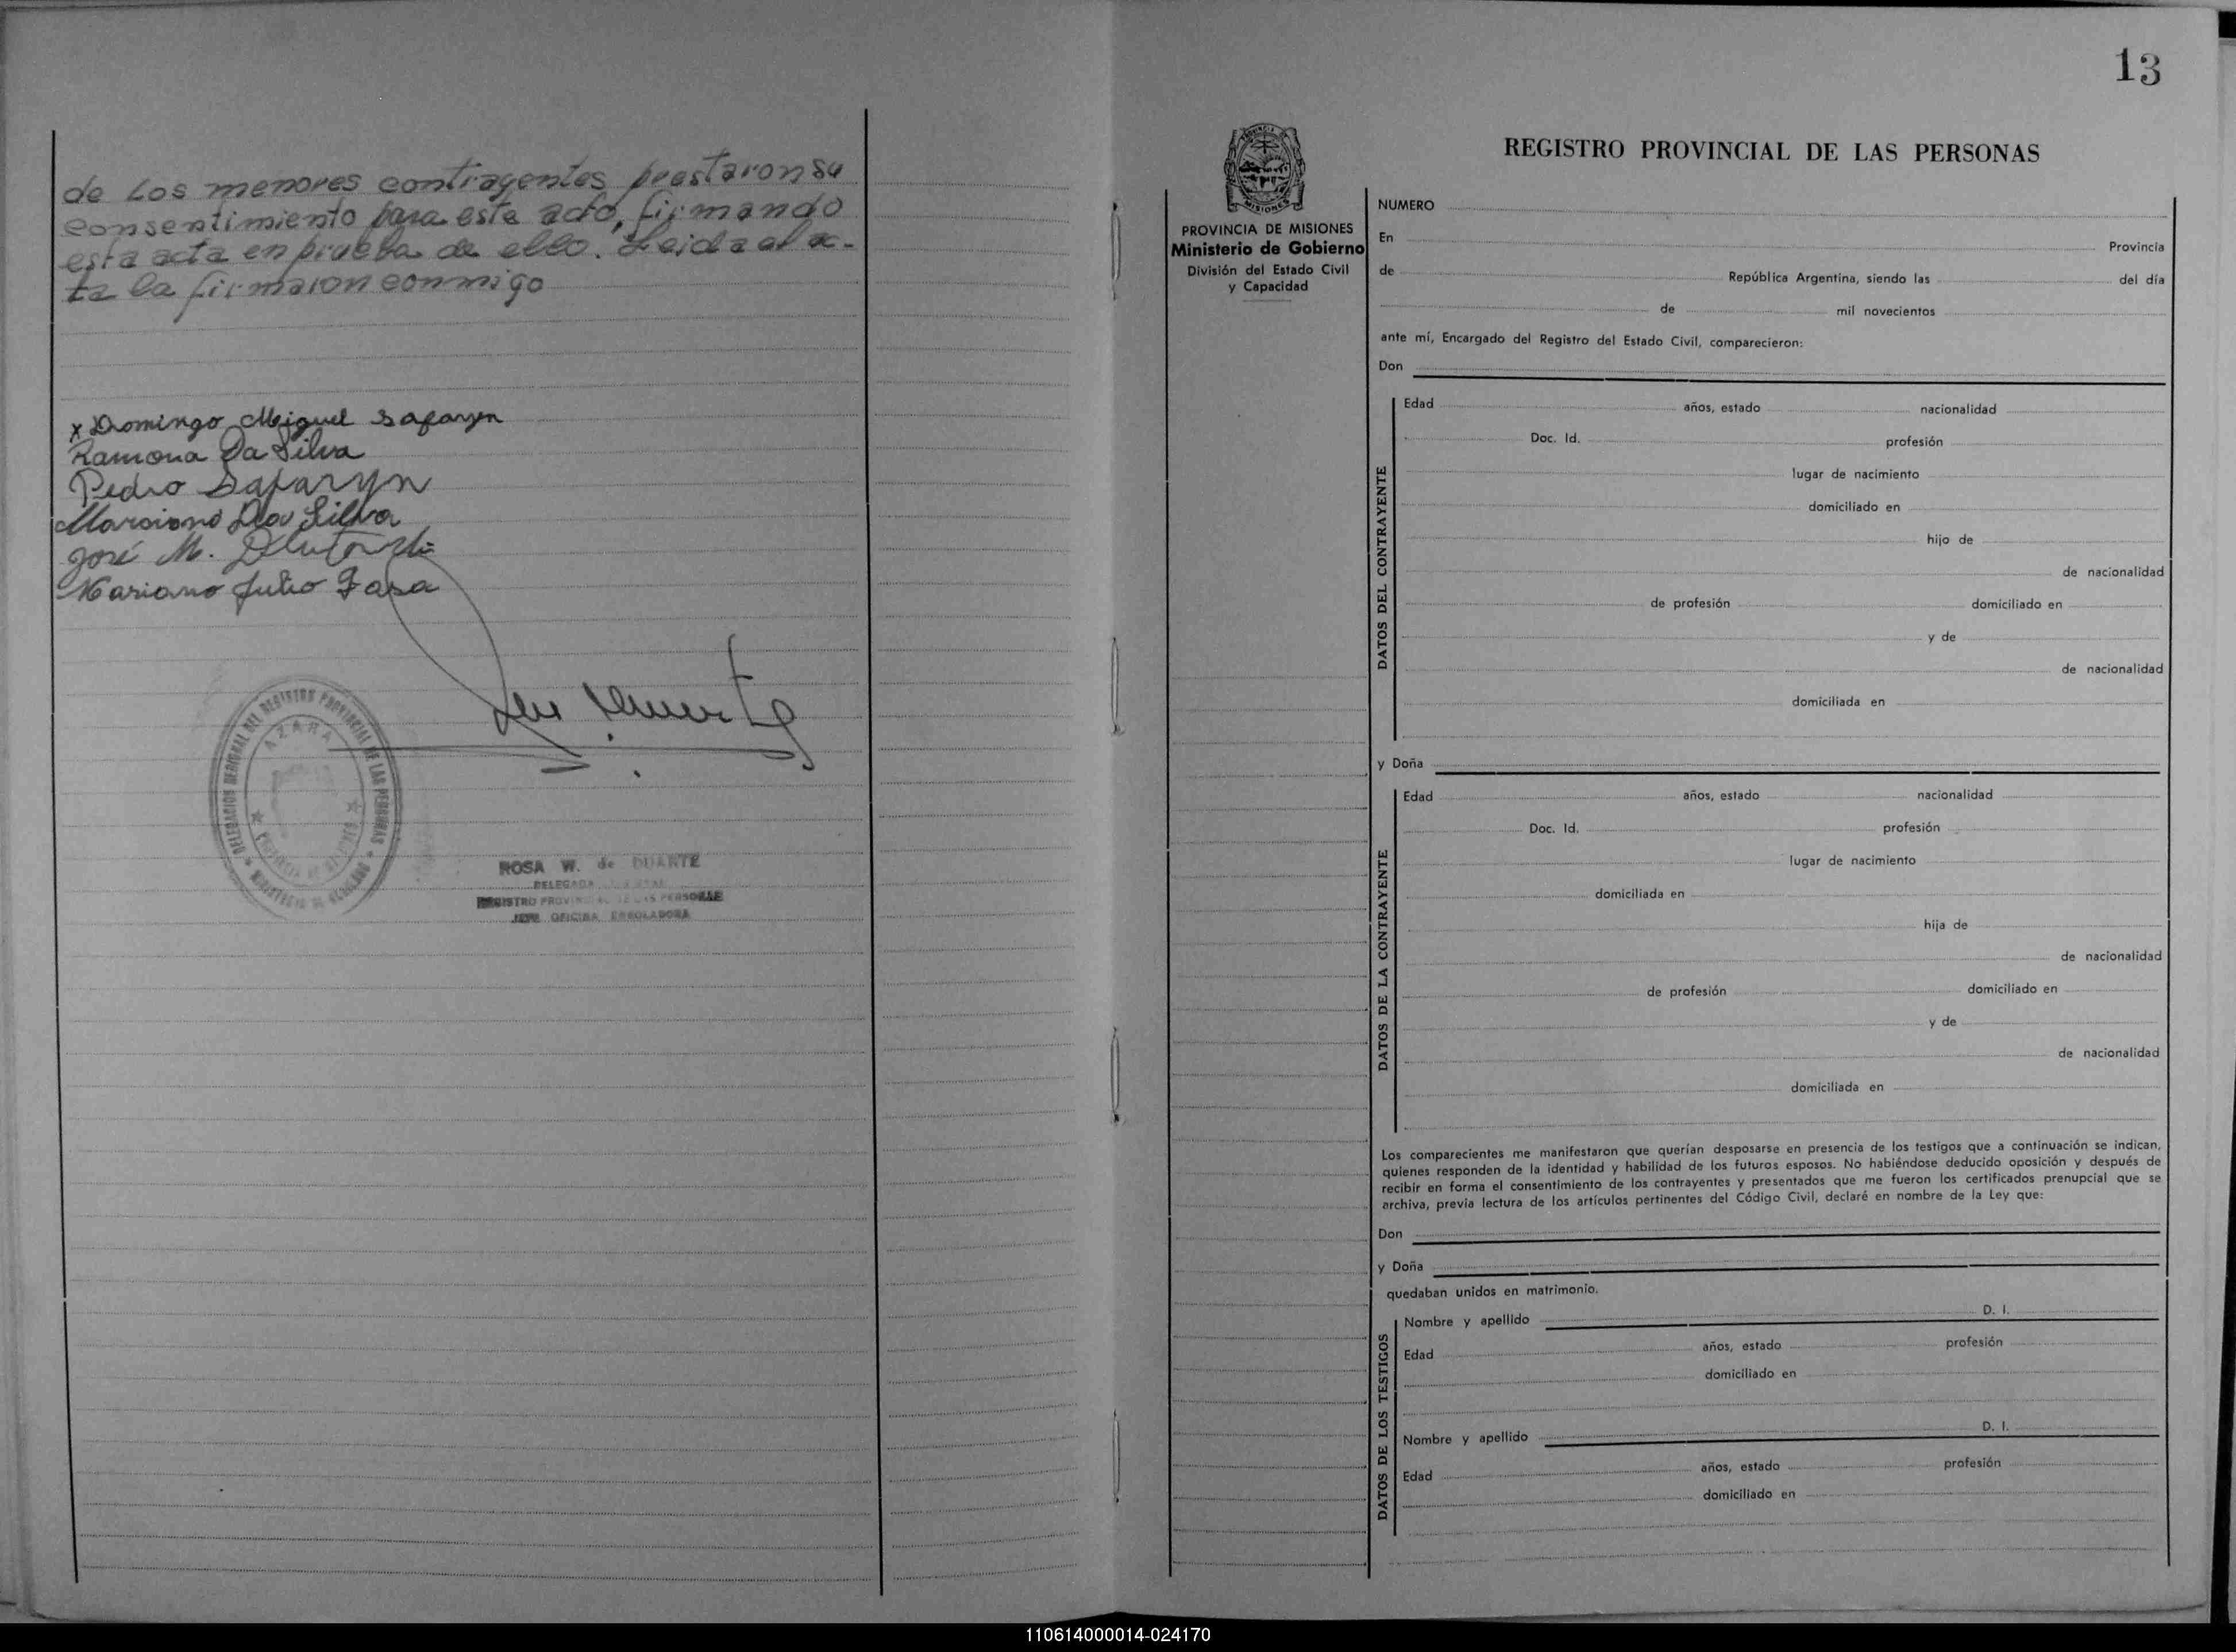 de Los menores contrayentes prestaron su
consentimiento para este acto, firmando
esta acta en prueba de ello. Leida el ac-
ta la firmaron conmigo
x Domingo Miguel Safaryn
Ramona Da Silva
Pedro Safaryn
Marciano Da Silva
José M.
Mariano Julio
DELEGACION REGIONAL DEL REGISTRO PROVINCIAL DE LAS PERSONAS
AZARA
ROSA W. de DUARTE
DELEGADA
REGISTRO PROVINCIAL DE LAS PERSONAS
JEFE OFICINA ENROLADORA
13
PROVINCIA DE MISIONES
Ministerio de Gobierno
División del Estado Civil
y Capacidad
REGISTRO PROVINCIAL DE LAS PERSONAS
NUMERO
En Provincia
de República Argentina, siendo las del día
de mil novecientos
ante mí, Encargado del Registro del Estado Civil, comparecieron:
Don
DATOS DEL CONTRAYENTE
Edad años, estado nacionalidad
Doc. Id. profesión
lugar de nacimiento
domiciliado en
hijo de
de nacionalidad
de profesión domiciliado en
y de
de nacionalidad
domiciliada en
y Doña
DATOS DE LA CONTRAYENTE
Edad años, estado nacionalidad
Doc. Id. profesión
lugar de nacimiento
domiciliada en
hija de
de nacionalidad
de profesión domiciliado en
y de
de nacionalidad
domiciliada en
Los comparecientes me manifestaron que querían desposarse en presencia de los testigos que a continuación se indican,
quienes responden de la identidad y habilidad de los futuros esposos. No habiéndose deducido oposición y después de
recibir en forma el consentimiento de los contrayentes y presentados que me fueron los certificados prenupcial que se
archiva, previa lectura de los artículos pertinentes del Código Civil, declaré en nombre de la Ley que:
Don
y Doña
quedaban unidos en matrimonio.
DATOS DE LOS TESTIGOS
Nombre y apellido D. I.
Edad años, estado profesión
domiciliado en
Nombre y apellido D. I.
Edad años, estado profesión
domiciliado en
110614000014-024170